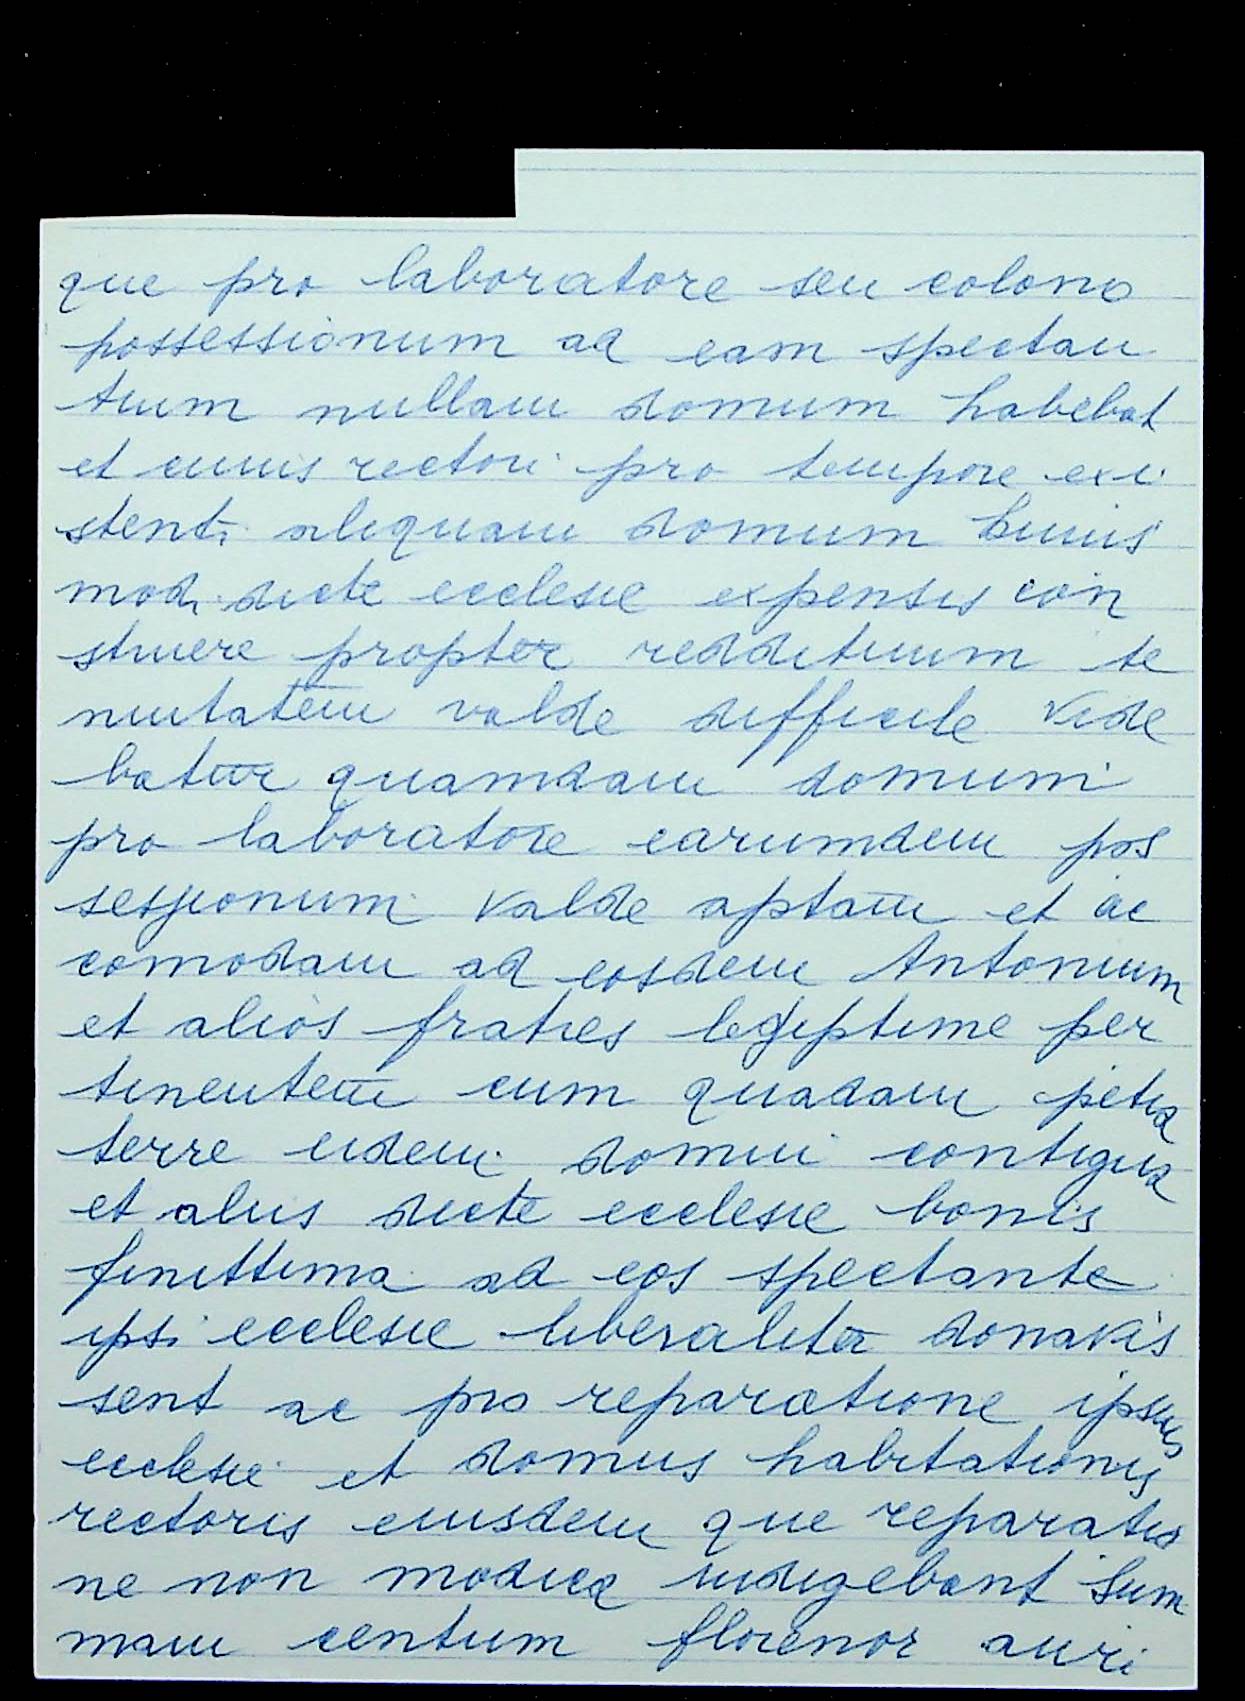 que pro laboratore seu colono
possessionum ad eam spectan
tium nullam domum habebat
et cuius rectori pro tempore exi
stenti aliquam domum huius
modi dicte ecclesie expensis con
struere propter reddituum te
nuitatem valde difficile vide
batur quamdam domum
pro laboratore earumdem pos
sessionum valde aptam et ac
comodam ad eosdem Antonium
et alios fratres legiptime per
tinentem cum quadam petia
terre eidem domui contigua
et aliis dicte ecclesie bonis
finittima ad eos spectante
ipsi ecclesie liberaliter donavis
sent ac pro reparatione ipsius
ecclesie et domus habitationis
rectoris eiusdem que reparatio
ne non modica indigebant sum
mam centum florenor auri